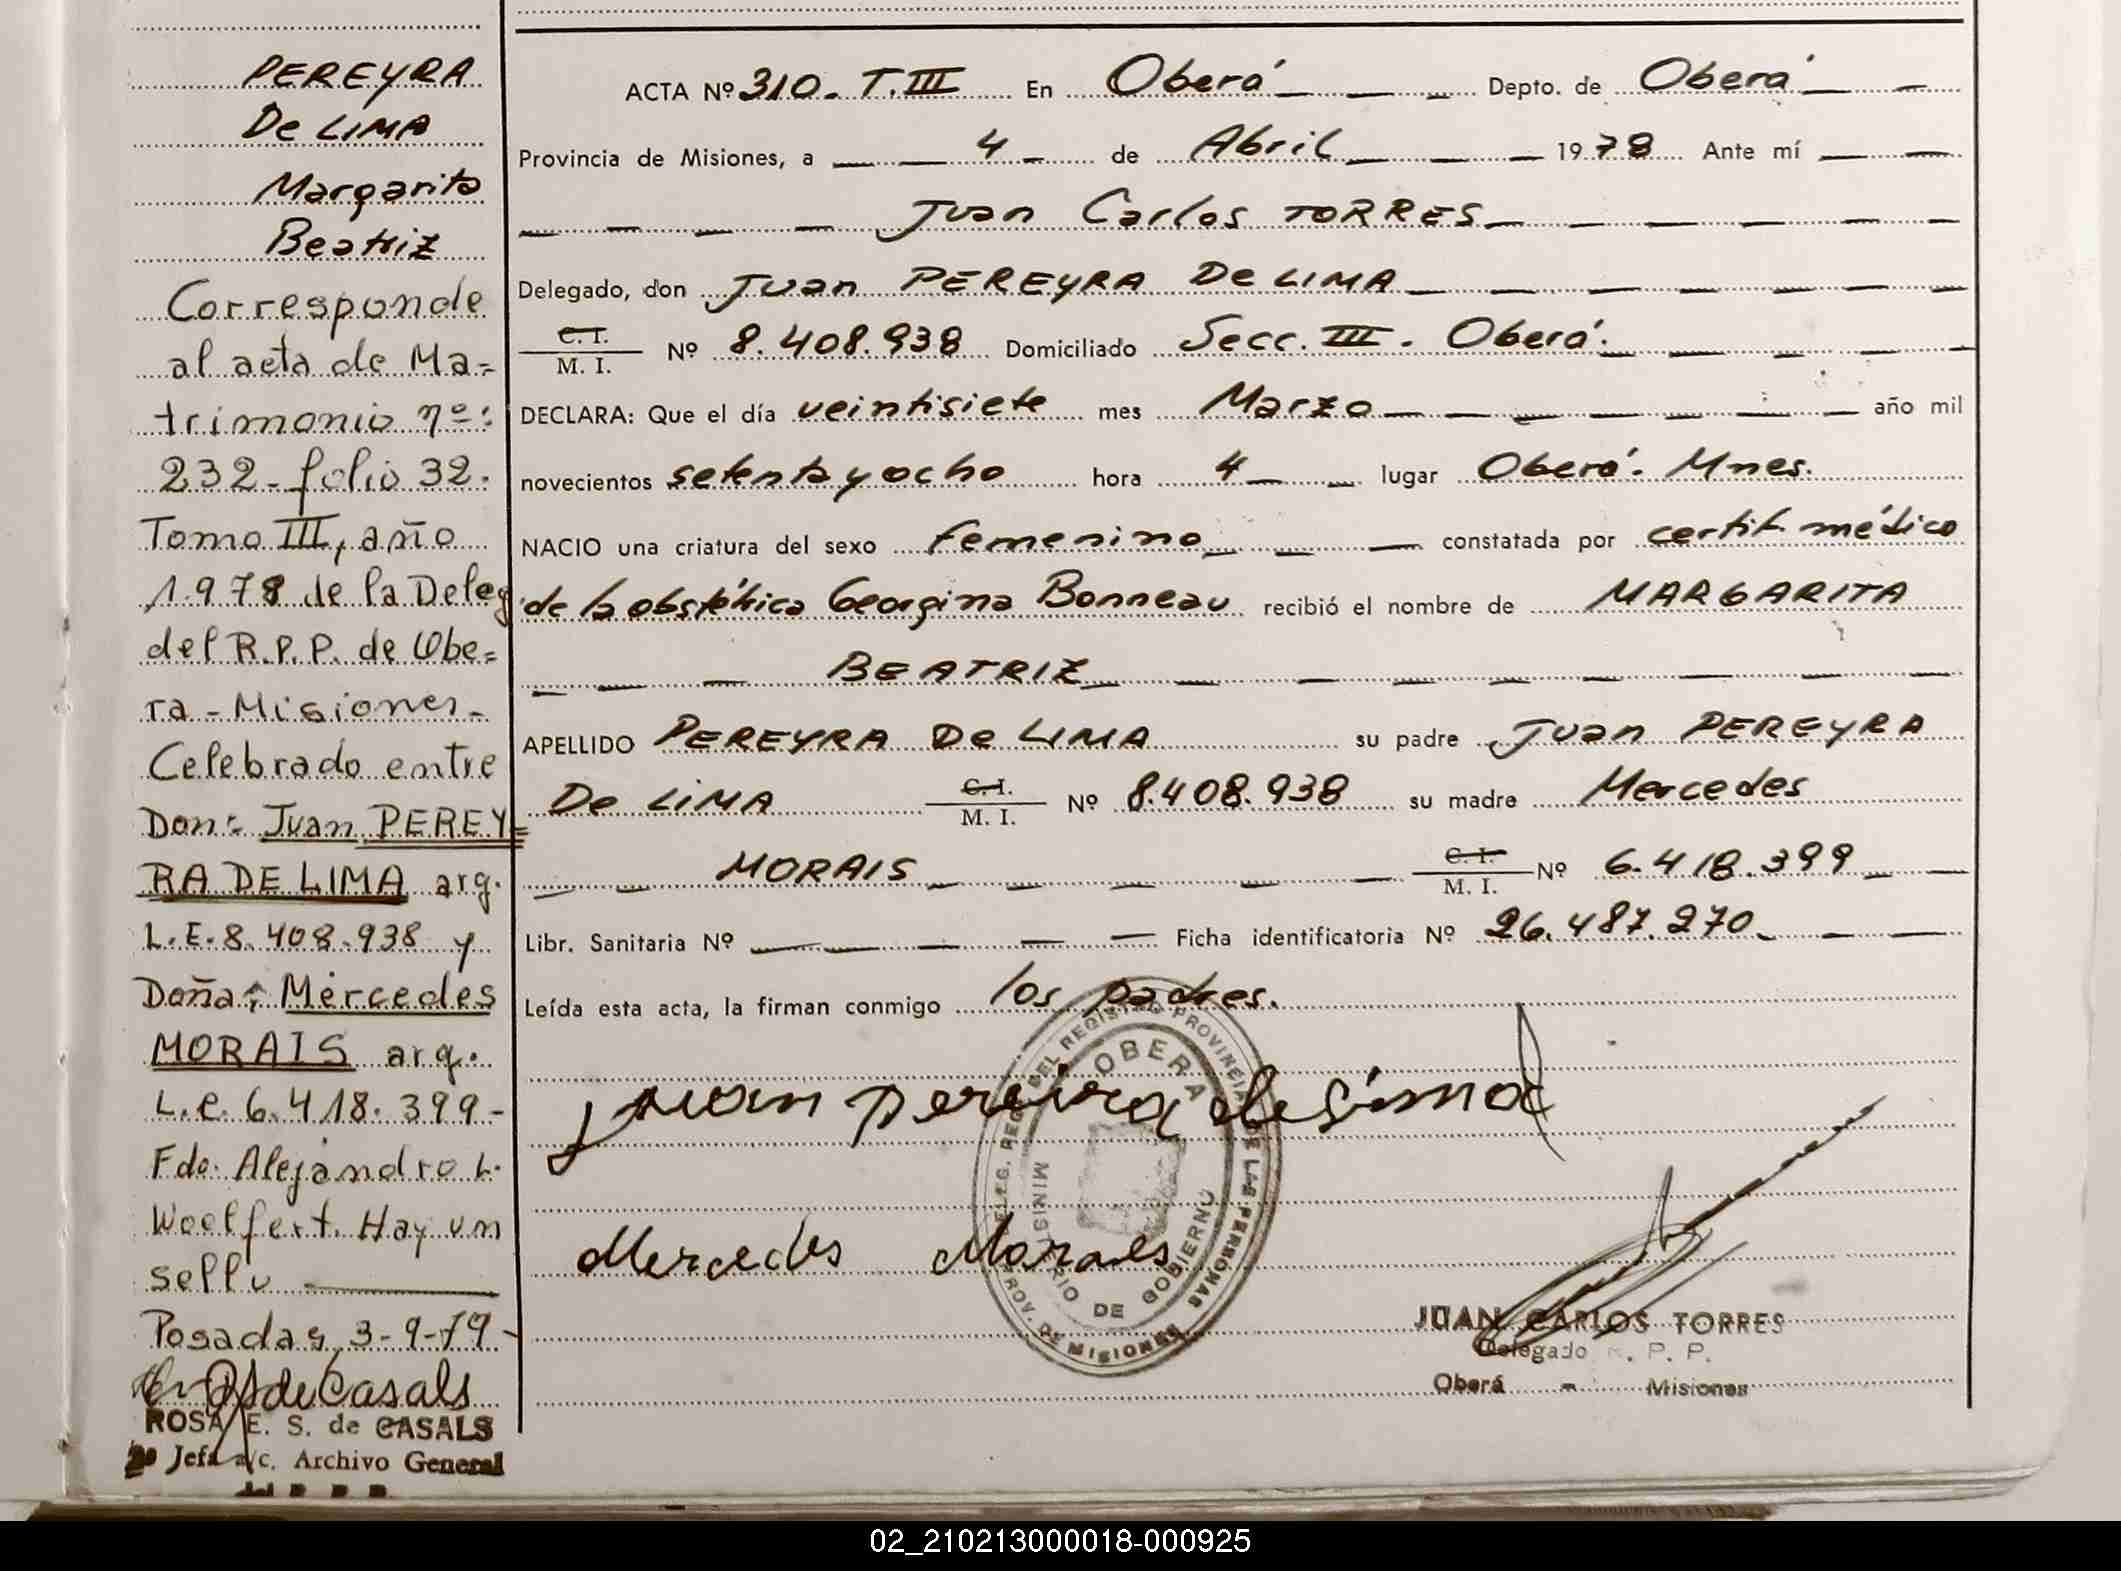 PEREYRA
De LIMA
Margarita
Beatriz
Corresponde
al acta de Ma=
trimonio nº:
232-folio 32.
Tomo III, año
1978 de la Deleg
del R.P.P. de Obe=
ra-Misiones-
Celebrado entre
Don: Juan PEREY=
RA DE LIMA arg.
L.E. 8.408.938 y
Doña: Mercedes
MORAIS arg.
L.E. 6.418.399-
Fdo. Alejandro L.
Woelfert. Hay un
sello
Posadas, 3-9-79-
de Casals
ROSA E. S. de CASALS
2º Jefa a/c. Archivo General
del R. P. P.
ACTA Nº 310. T. III En Oberá Depto. de Oberá
Provincia de Misiones, a 4 de Abril 1978 Ante mí
Juan Carlos TORRES
Delegado, don Juan PEREYRA De LIMA
C. I.
M. I. Nº 8.408.938 Domiciliado Secc. III. Oberá.
DECLARA: Que el día veintisiete mes Marzo año mil
novecientos setenta y ocho hora 4 lugar Oberá. Mnes.
NACIO una criatura del sexo femenino constatada por certif. médico
de la obstétrica Georgina Bonneau recibió el nombre de MARGARITA
BEATRIZ
APELLIDO PEREYRA De LIMA su padre Juan PEREYRA
De LIMA C. I. M. I. Nº 8.408.938 su madre Mercedes
MORAIS C. I. M. I. Nº 6.418.399
Libr. Sanitaria Nº Ficha identificatoria Nº 26.487.270
Leída esta acta, la firman conmigo los padres.
DELEG. REG. DEL REGISTRO PROVINCIAL DE LAS PERSONAS
OBERA
MINISTERIO DE GOBIERNO
PROV. DE MISIONES
Juan pereira de lima
Mercedes Moraes
JUAN CARLOS TORRES
Delegado R. P. P.
Oberá - Misiones
02_210213000018-000925